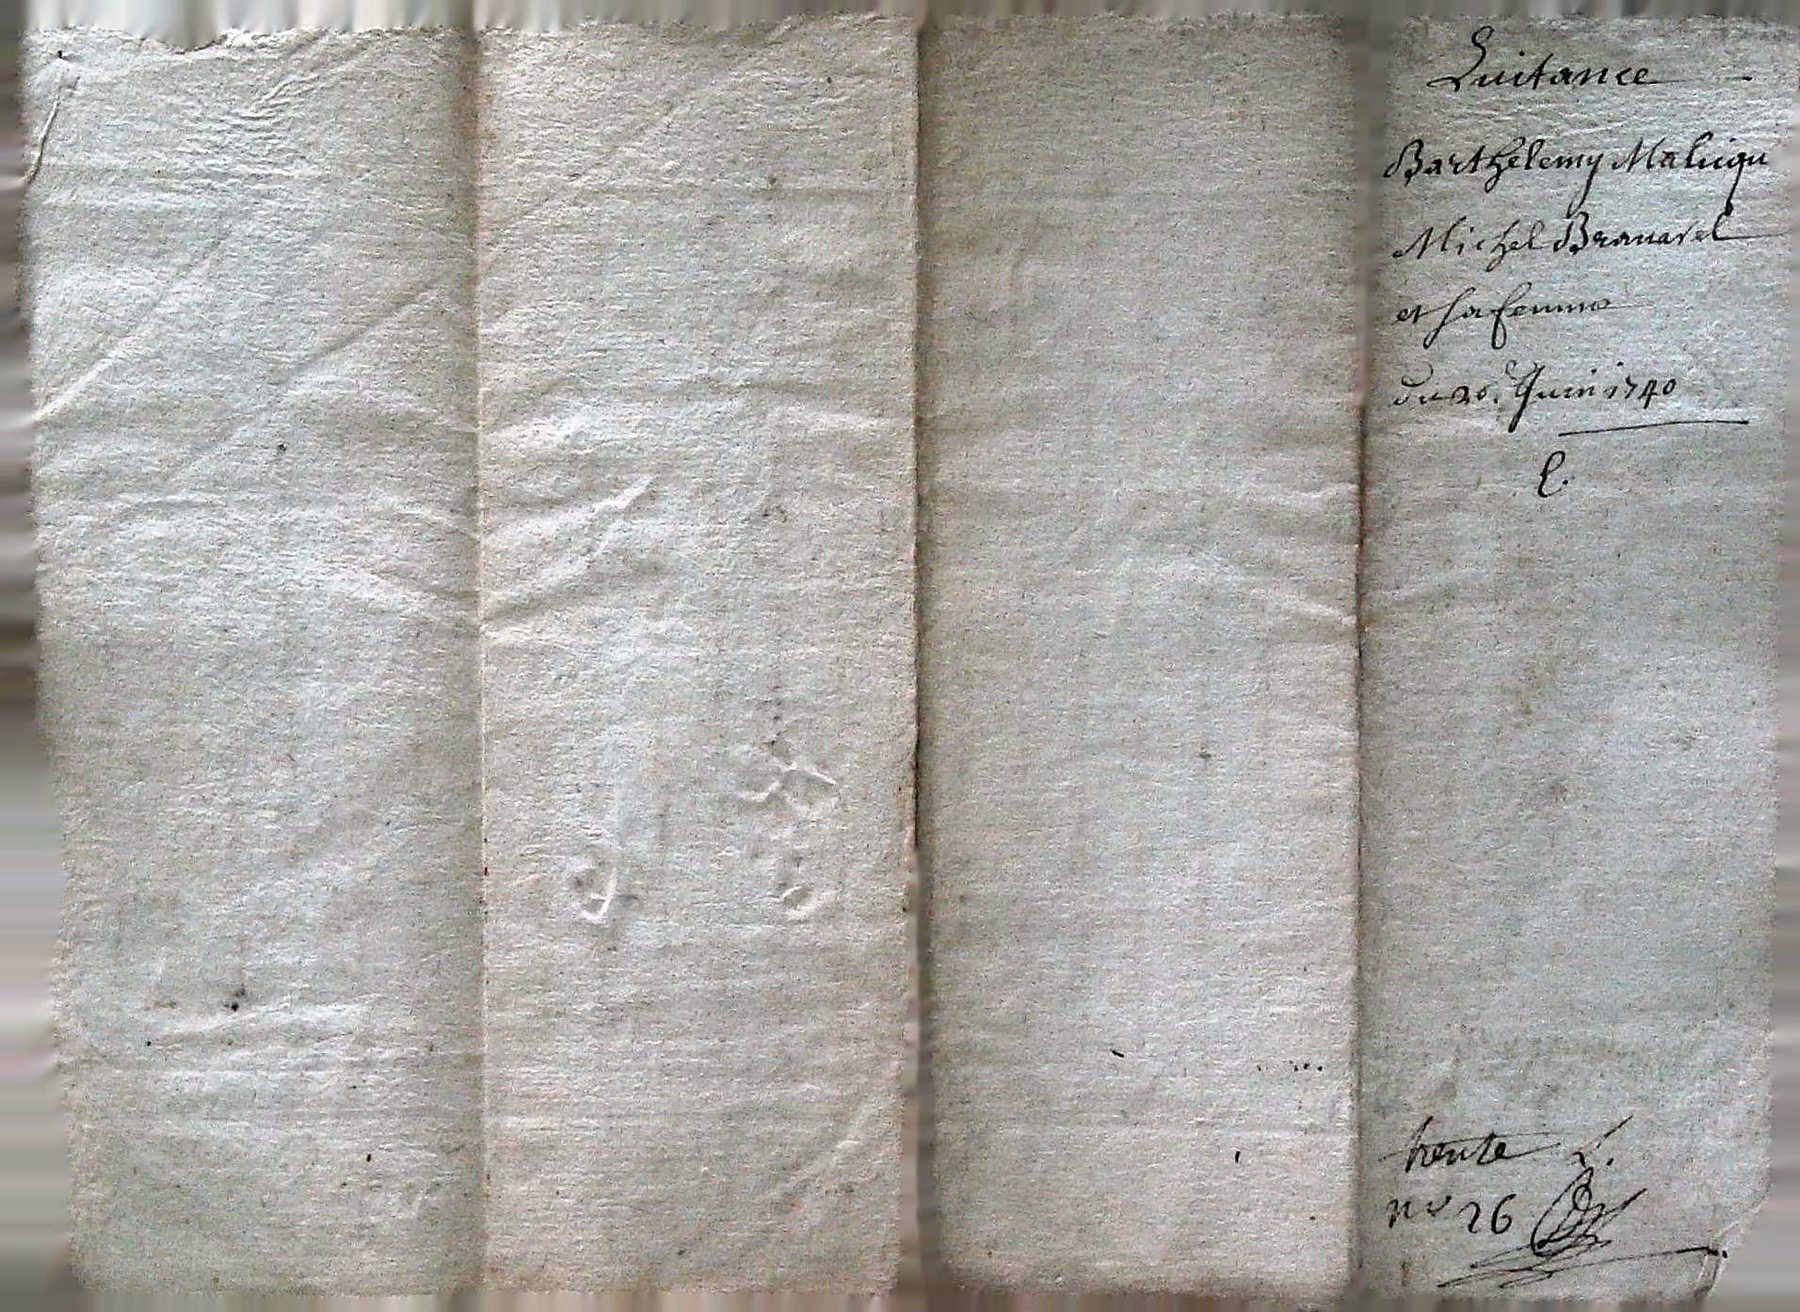 Quitance
Barthelemy Maliqu
Michel Brauard
et sa femme
du 26. Juin 1740
C.
trente L.
no 26